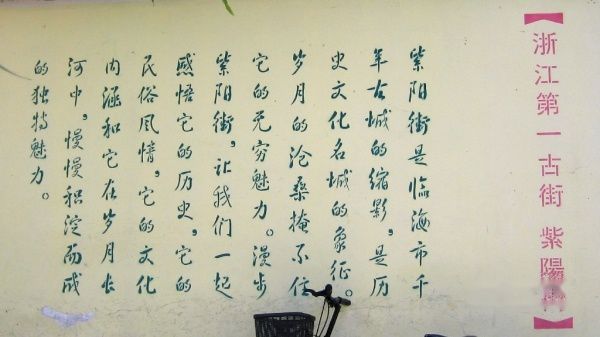 【浙江第一古街 紫陽】
紫阳街是临海市千
年古城的缩影，是历
史文化名城的象征。
岁月的沧桑掩不住
它的无穷魅力。漫步
紫阳街，让我们一起
感悟它的历史，它的
民俗风情，它的文化
内涵和它在岁月长
河中，慢慢积淀而成
的独特魅力。